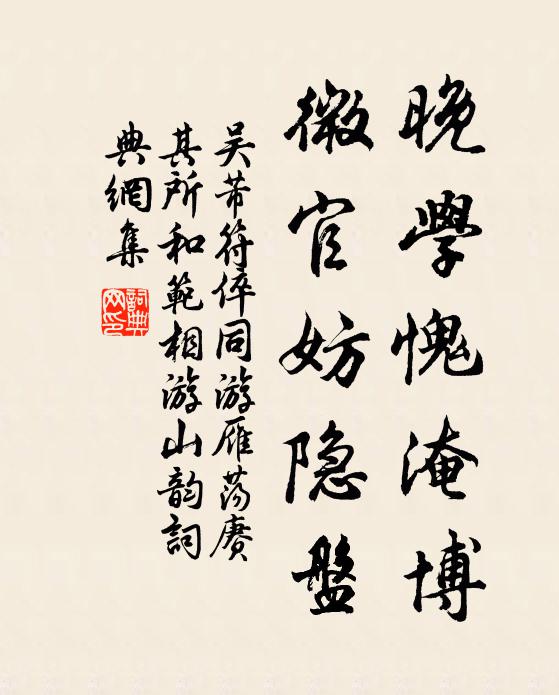 晚學愧淹博
微官妨隐盤
吴芾符倅同游雁荡赓
其所和範相游山韵詞
典網集
詞典网印